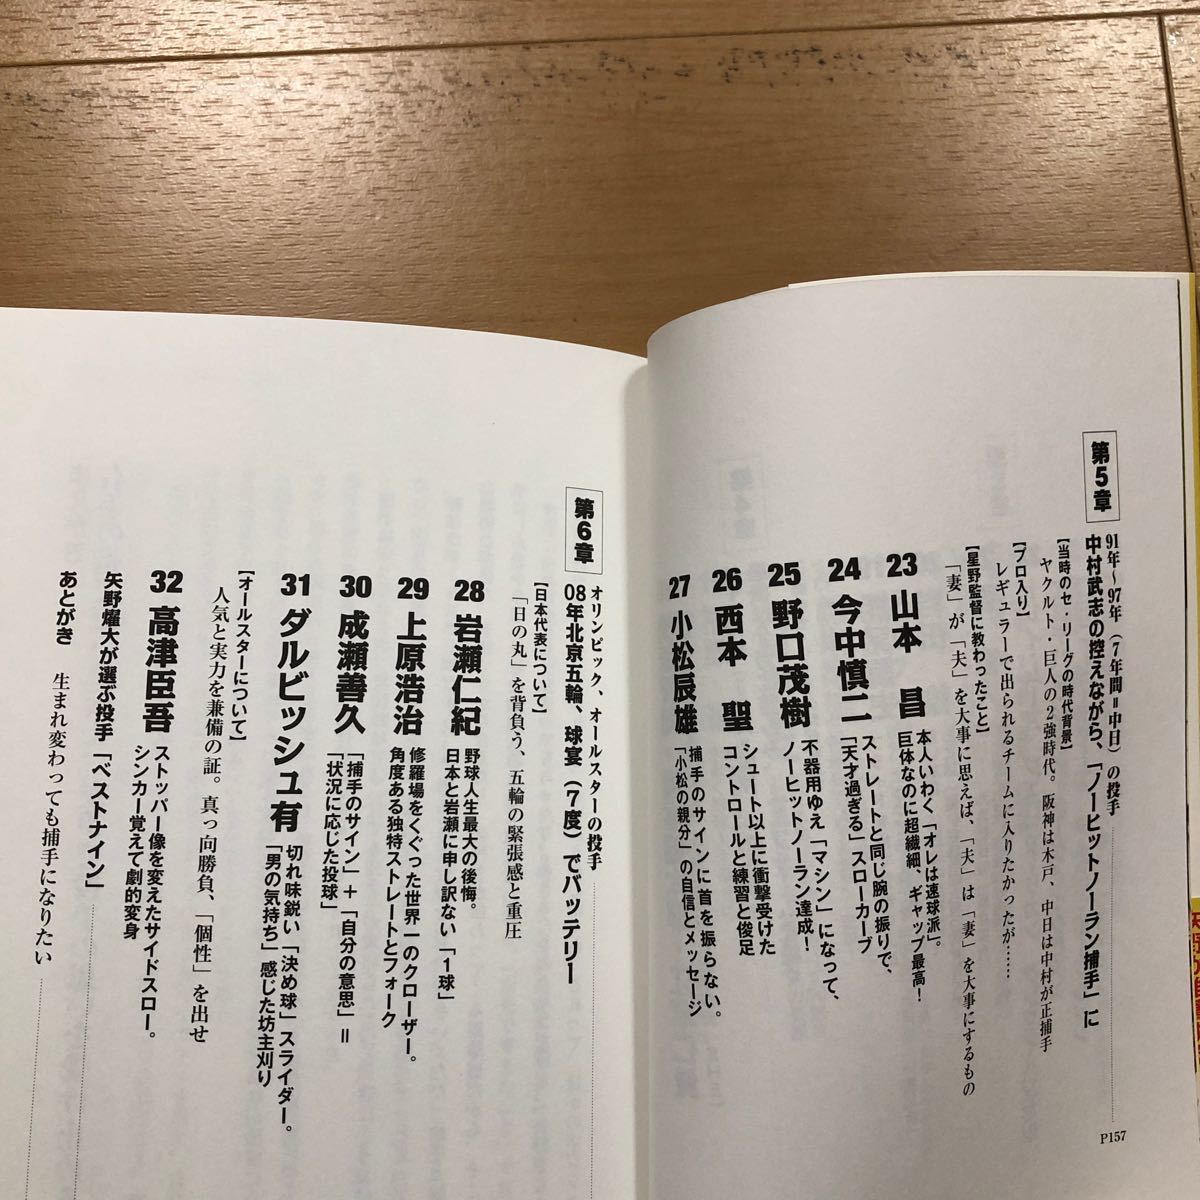 第5章
91年〜97年（7年間＝中日）の投手
中村武志の控えながら、「ノーヒットノーラン捕手」に
P157
【当時のセ・リーグの時代背景】
ヤクルト・巨人の2強時代。阪神は木戸、中日は中村が正捕手
【プロ入り】
レギュラーで出られるチームに入りたかったが……
【星野監督に教わったこと】
「妻」が「夫」を大事に思えば、「夫」は「妻」を大事にするもの
23 山本 昌
本人いわく「オレは速球派」。
巨体なのに超繊細、ギャップ最高！
24 今中慎二
ストレートと同じ腕の振りで、
「天才過ぎる」スローカーブ
25 野口茂樹
不器用ゆえ「マシン」になって、
ノーヒットノーラン達成！
26 西本 聖
シュート以上に衝撃受けた
コントロールと練習と俊足
27 小松辰雄
捕手のサインに首を振らない。
「小松の親分」の自信とメッセージ
第6章
オリンピック、オールスターの投手
08年北京五輪、球宴（7度）でバッテリー
【日本代表について】
「日の丸」を背負う、五輪の緊張感と重圧
28 岩瀬仁紀
野球人生最大の後悔。
日本と岩瀬に申し訳ない「1球」
29 上原浩治
修羅場をくぐった世界一のクローザー。
角度ある独特ストレートとフォーク
30 成瀬善久
「捕手のサイン」＋「自分の意思」＝
「状況に応じた投球」
31 ダルビッシュ有
切れ味鋭い「決め球」スライダー。
「男の気持ち」感じた坊主刈り
【オールスターについて】
人気と実力を兼備の証。真っ向勝負、「個性」を出せ
32 高津臣吾
ストッパー像を変えたサイドスロー。
シンカー覚えて劇的変身
矢野燿大が選ぶ投手「ベストナイン」
あとがき 生まれ変わっても捕手になりたい